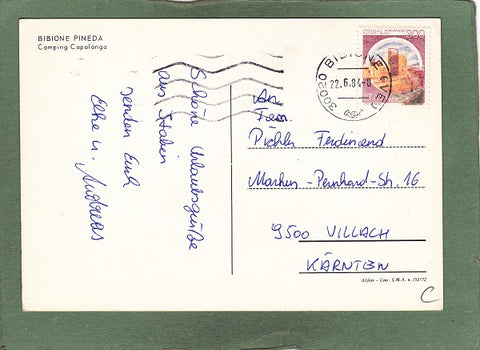 BIBIONE PINEDA
Camping Capalonga
300
30020 BIBIONE (VE)
22.6.84-8
Schöne Urlaubsgrüße
aus Italien
senden Euch
Elke u. Andreas
An
Fam.
Pichler Ferdinand
Markus-Pernhard-Str. 16
9500 VILLACH
KÄRNTEN
C